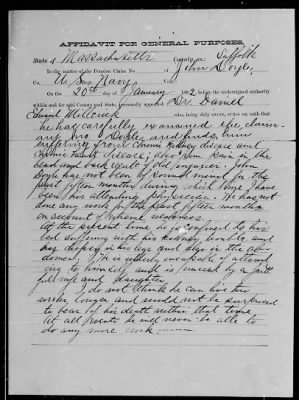 AFFIDAVIT FOR GENERAL PURPOSES.
State of Massachusetts County of Suffolk
In the matter of the Pension Claim No. John Doyle,
Co. U.S. Navy Vol.
On the 20th day of January 1892 before the undersigned authority
within and for said County and State, personally appeared Dr. Daniel
Edward who, being duly sworn, states on oath that
he has carefully examined the claim-
ant, Mr. Doyle, and finds him
suffering from Chronic Kidney disease and
chronic heart disease, also pain in the
head and back result of the original. John
Doyle has not been of sound mind for the
past fifteen months during which time I have
been his attending physician. He has not
done any work for the past fifteen months
on account of
At the present time he is confined to his
bed suffering with his kidney trouble and
has dropsy in his legs and also in the ab-
domen. He is utterly incapable of attend
ing to himself and is nursed by a
wife and daughter.
I do not think he can live two
weeks longer and would not be surprised
to hear of his death within that time
At all events he will never be able to
do any more work